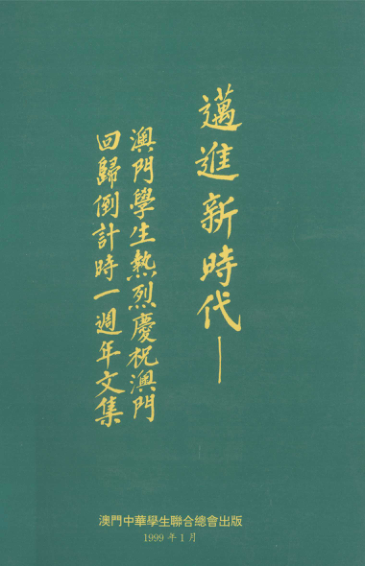 邁進新時代—
澳門學生熱烈慶祝澳門
回歸倒計時一週年文集
澳門中華學生聯合總會出版
1999年1月